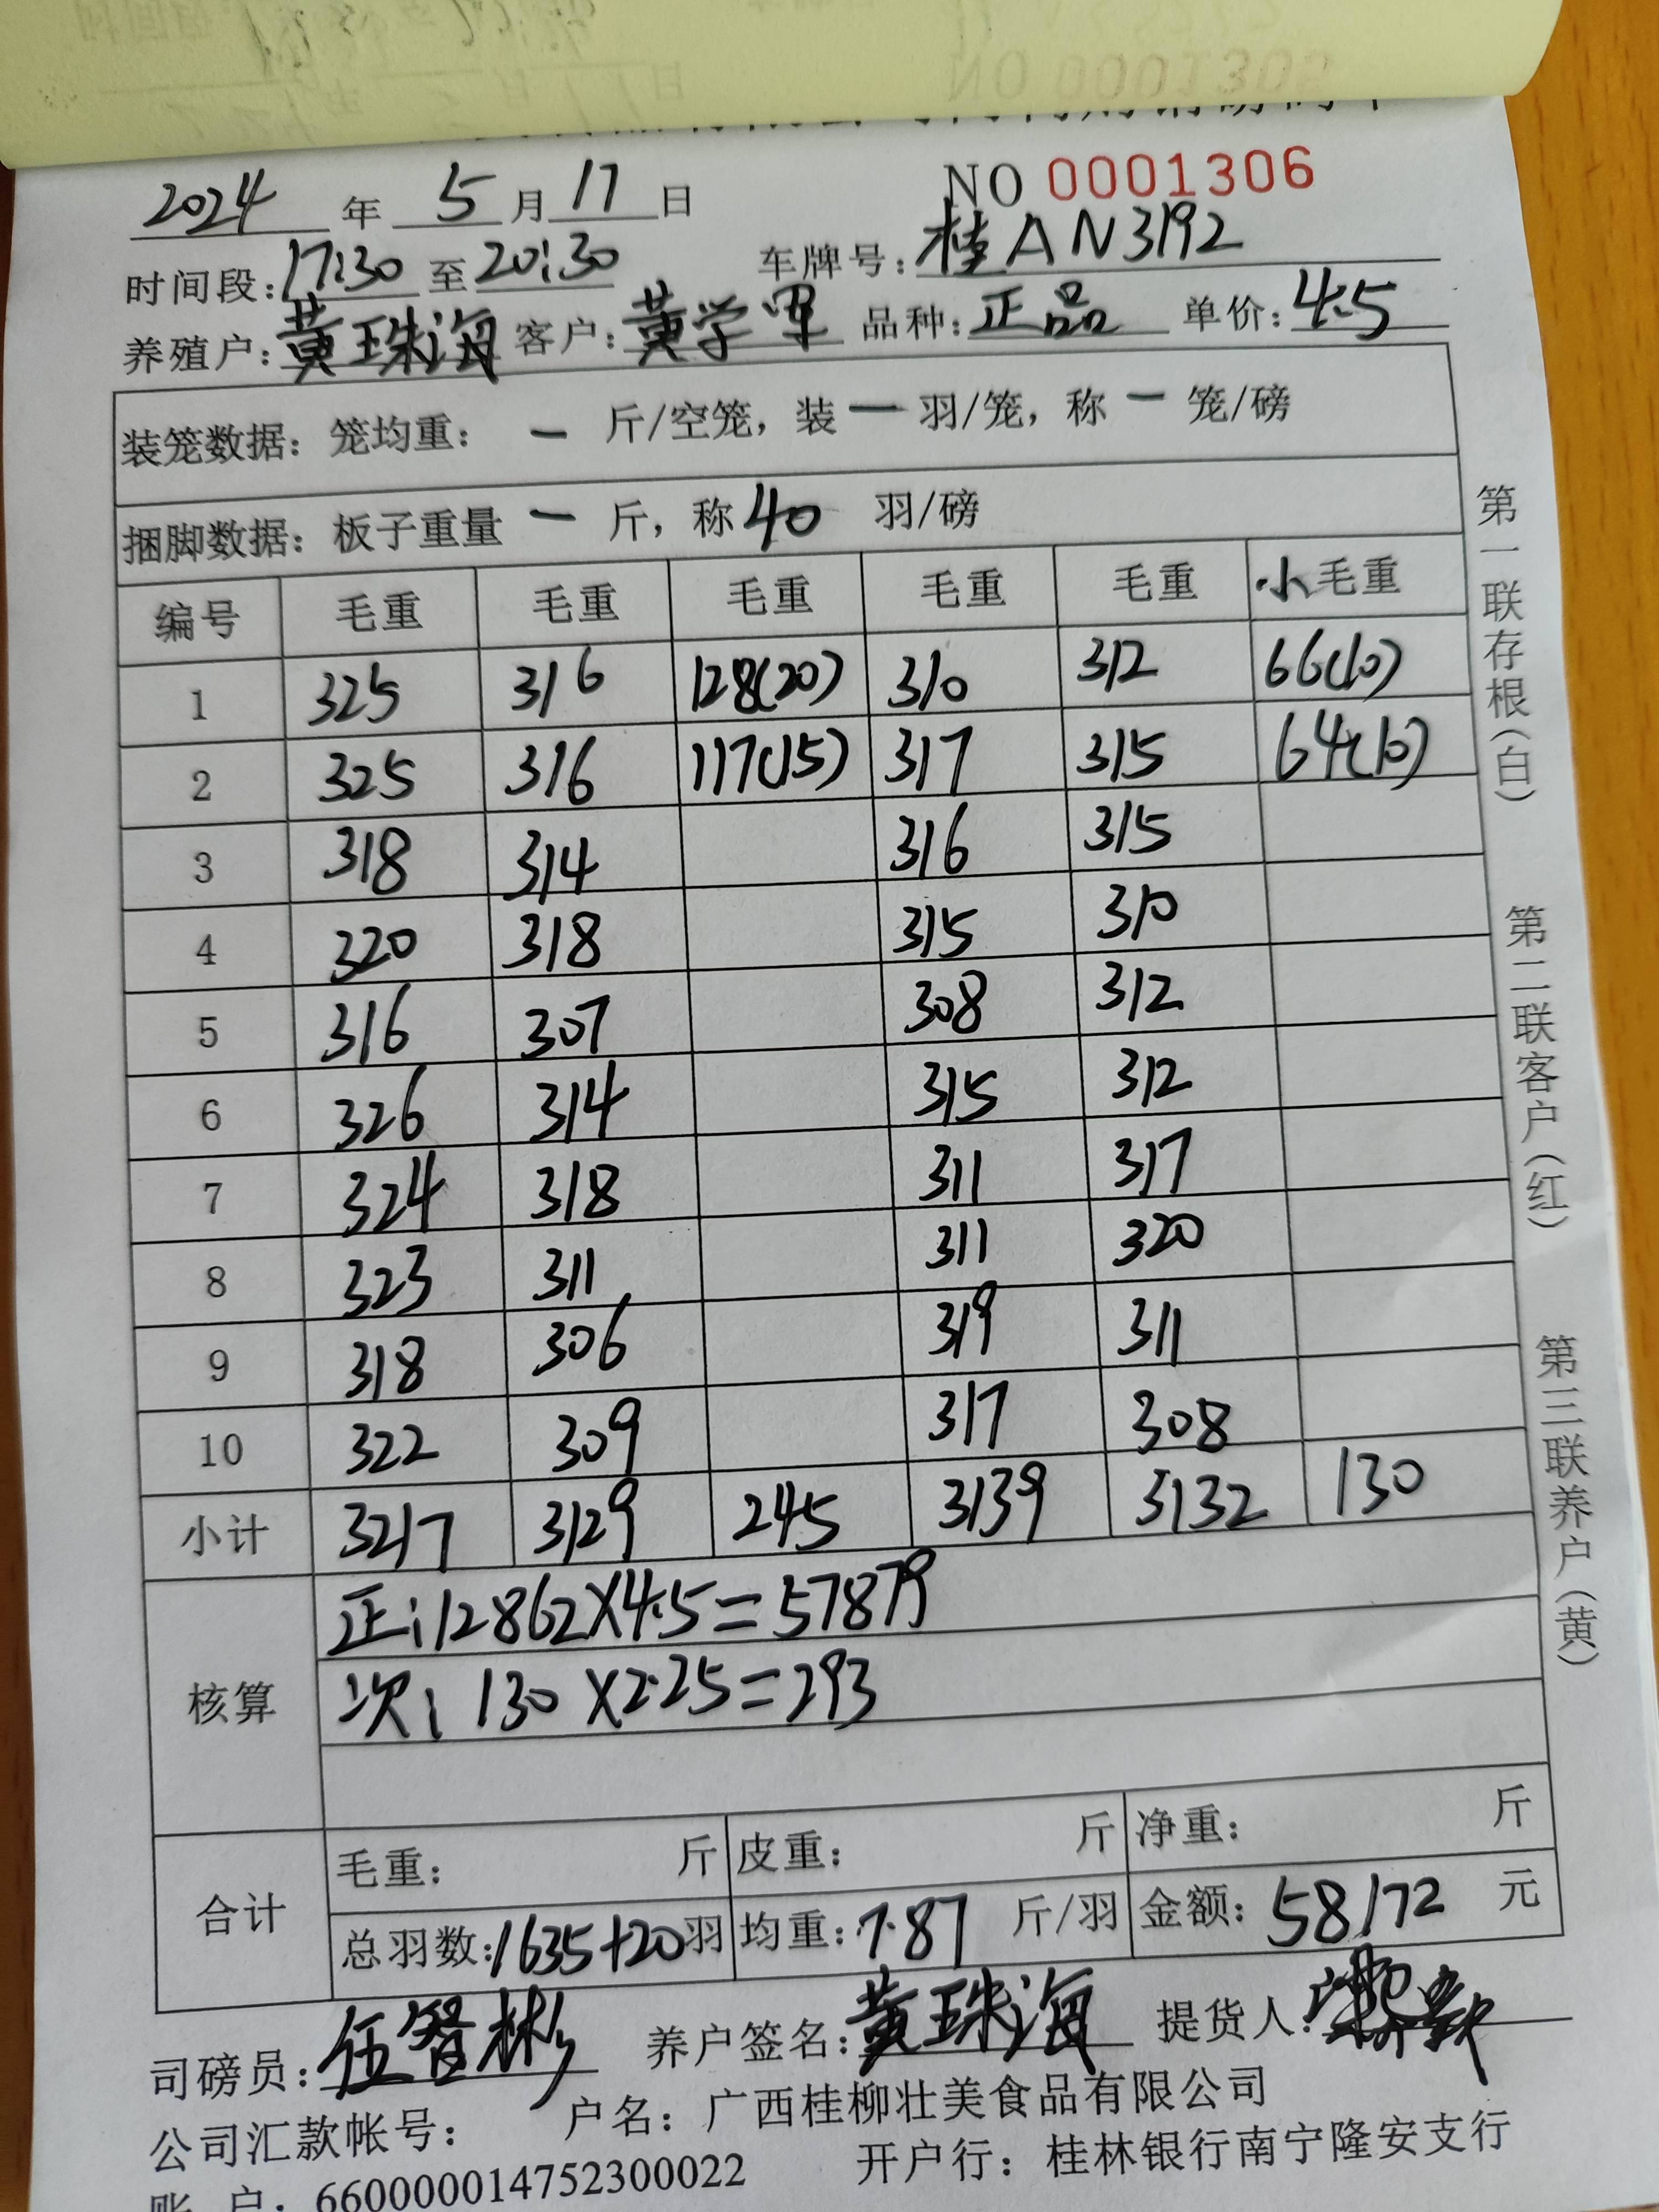 NO 0001305
2024 年 5 月 17 日 NO 0001306
时间段:17:30 至 20:30 车牌号:桂AN3192
养殖户:黄珠海 客户:黄学军 品种:正品 单价:4.5
装笼数据: 笼均重: — 斤/空笼, 装 — 羽/笼, 称 — 笼/磅
捆脚数据: 板子重量 — 斤, 称 40 羽/磅
编号 毛重 毛重 毛重 毛重 毛重 小毛重
1 325 316 128(20) 310 312 66(10)
2 325 316 117(15) 317 315 64(10)
3 318 314 316 315
4 320 318 315 310
5 316 307 308 312
6 326 314 315 312
7 324 318 311 317
8 323 311 311 320
9 318 306 319 311
10 322 309 317 308
小计 3217 3129 245 3139 3132 130
核算 正:12862X4.5=57879
次: 130 X2.25=293
合计 毛重: 斤 皮重: 斤 净重: 斤
总羽数:1635+20羽 均重:7.87 斤/羽 金额: 58172 元
司磅员:伍智彬 养户签名:黄珠海 提货人:
公司汇款帐号: 户名: 广西桂柳壮美食品有限公司
账 户: 660000014752300022 开户行: 桂林银行南宁隆安支行
第一联存根(白) 第二联客户(红) 第三联养户(黄)